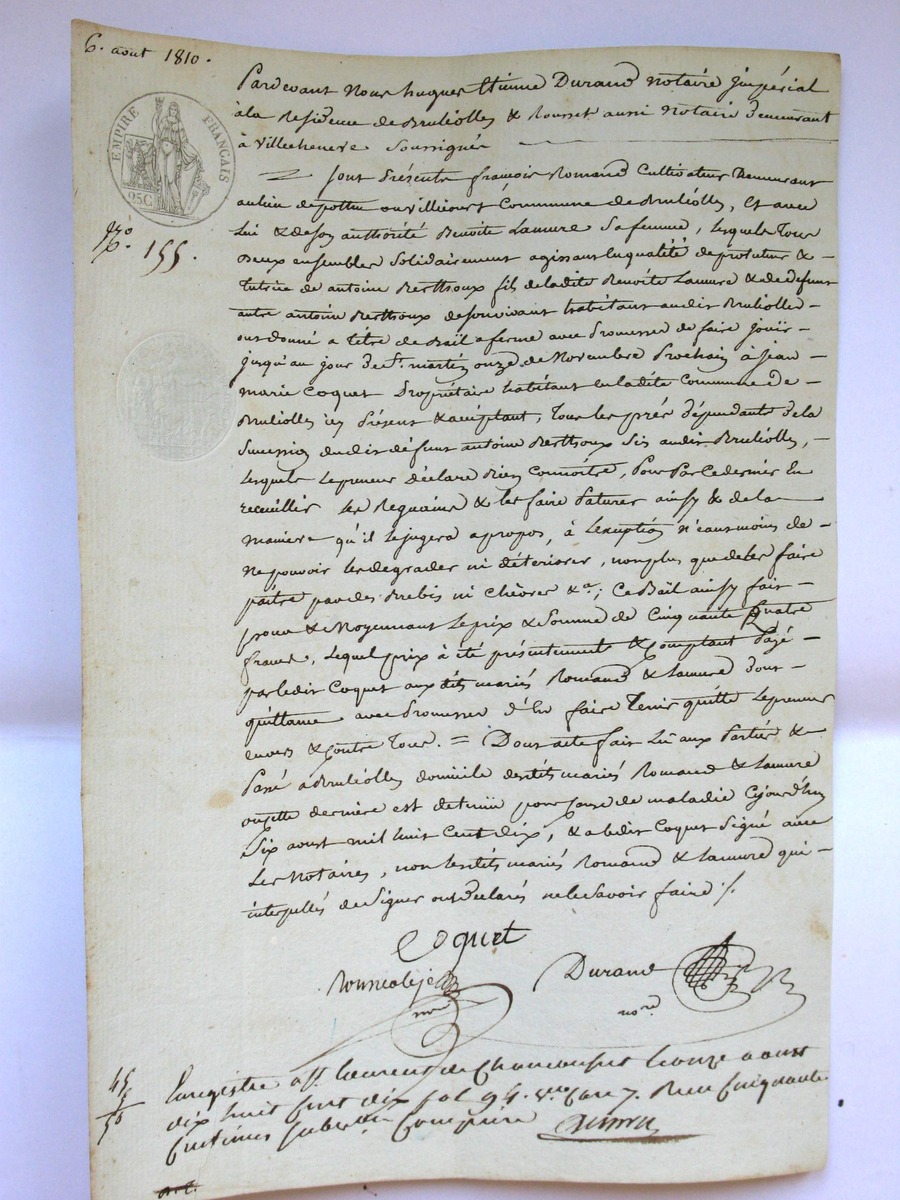 6. aout 1810.
EMPIRE FRANÇAIS
25C
N.ro 155.
Pardevant Nous hugues Etienne Durand notaire Jmpérial
à la Residence de Bruliolles & Rousset aussi notaire Demeurant
à Villechenève soussignés
sont Présents françois Romand Cultivateur Demeurant
au lieu de Commune de Bruliolles, Et avec
Lui & de son authorité Benoite Lamure sa femme, lesquels Tous
Deux ensembles solidairement agissant en qualité de protuteur &
tutrice de antoine Berthoux fils de ladite Benoite Lamure & de defunt
autre antoine Berthoux de son vivant habitant audit Bruliolles
ont donné a titre de Bail a ferme avec Promesse de faire jouir
jusqu'au jour de St. martin onze de Novembre Prochain à Jean
marie Coquet Propriétaire habitant en ladite Commune de
Bruliolles icy Présent & acceptant, Tous les prés dépendants de la
Succession dudit défunt antoine Berthoux sis audit Bruliolles,
lesquels le preneur Déclare Bien Connoitre, Pour Par Ce dernier En
recueillir les Reguains & les faire Paturer ainsy & de la
maniere qu'il le jugera apropos, à L'exception néanmoins de
ne pouvoir les degrader ni détériorer, non plus que de les faire
paitre par des Brebis ni chèvres &a; Ce Bail ainsy fait
pour & Moyennant Le prix & Somme de Cinquante Quatre
francs, Lequel prix à été présentement & Comptant Payé
par ledit Coquet aux dits mariés Romand & Lamure Dont
quittance avec Promesse d'En faire Tenir quitte le preneur
envers & Contre Tous. = Dont acte fait Lu aux Parties &
Passé a Bruliolles domicile desdits mariés Romand & Lamure
ou cette derniere est detenue pour Cause de maladie Cejourd'huy
Six aoust mil huit Cent dix, & a ledit Coquet Signé avec
Les Notaires, non lesdits mariés Romand & Lamure qui
interpellés de Signer ont Déclarés ne le Savoir faire ./.
Coquet
Durand
nore
nore
45
5
50
Enregistré a St. Laurent de Chamousset le onze aoust
dix huit Cent dix fol 94. vo. Case 7. Reçu Cinquante
Centimes Subvon Comprise